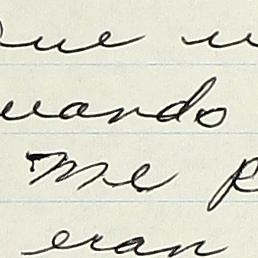 que u
uando
me p
eran